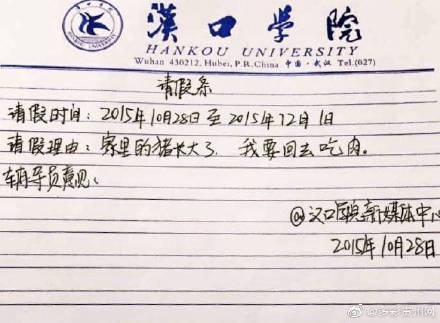 漢口学院
HANKOU UNIVERSITY
Wuhan 430212, Hubei, P.R.China 中国·武汉 Tel.(027)
请假条
请假时间：2015年10月28日 至 2015年12月1日
请假理由：家里的猪长大了，我要回去吃肉。
辅导员意见：
@汉口学院新媒体中心
2015年10月28日